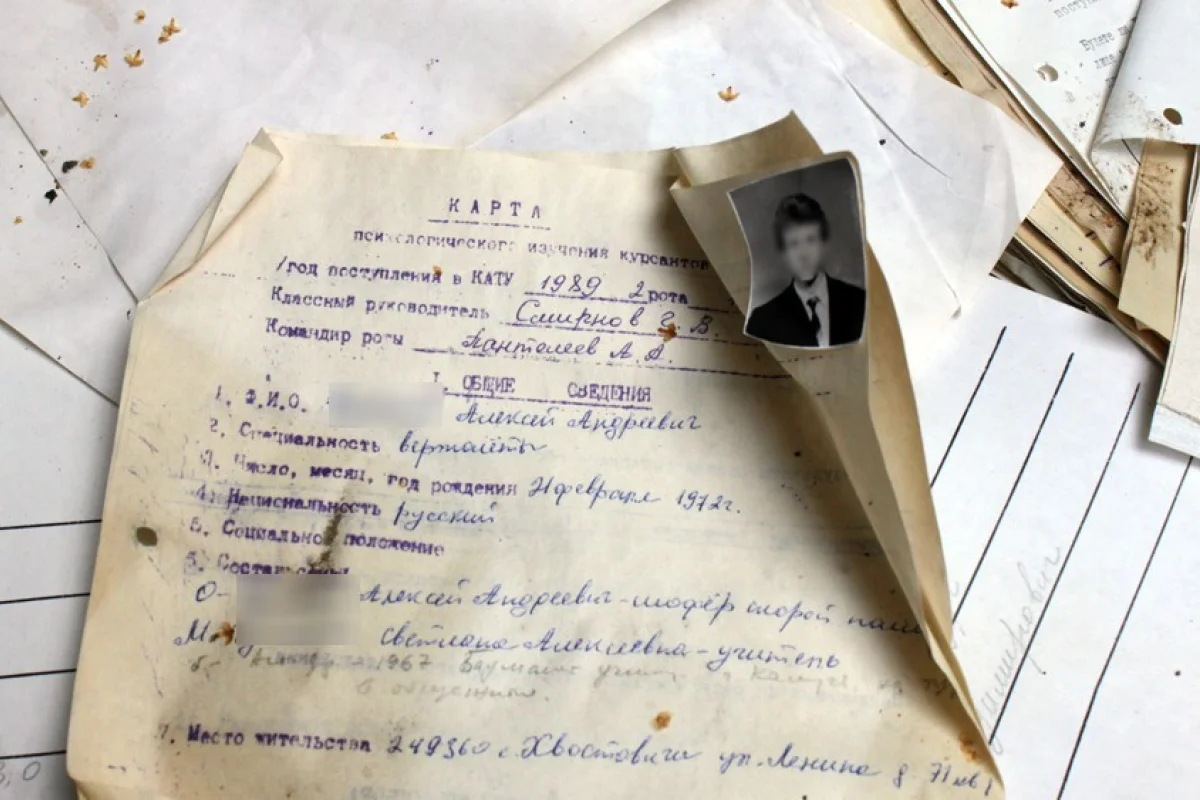 КАРТА
психологического изучения курсантов
/год поступления в КАТУ 1989 2 рота
Классный руководитель Смирнов Г. В.
Командир роты Пантелеев А. А.
I. ОБЩИЕ СВЕДЕНИЯ
1. Ф.И.О. Алексей Андреевич
2. Специальность вертолёты
3. Число, месяц, год рождения 21 февраля 1972г.
4. Национальность русский
5. Социальное положение
Состав семьи
О- Алексей Андреевич - шофёр скорой
М. Светлана Алексеевна - учитель
1967
7. Место жительства 249360 с. Хвостовичи ул. Ленина д 71 кв 1